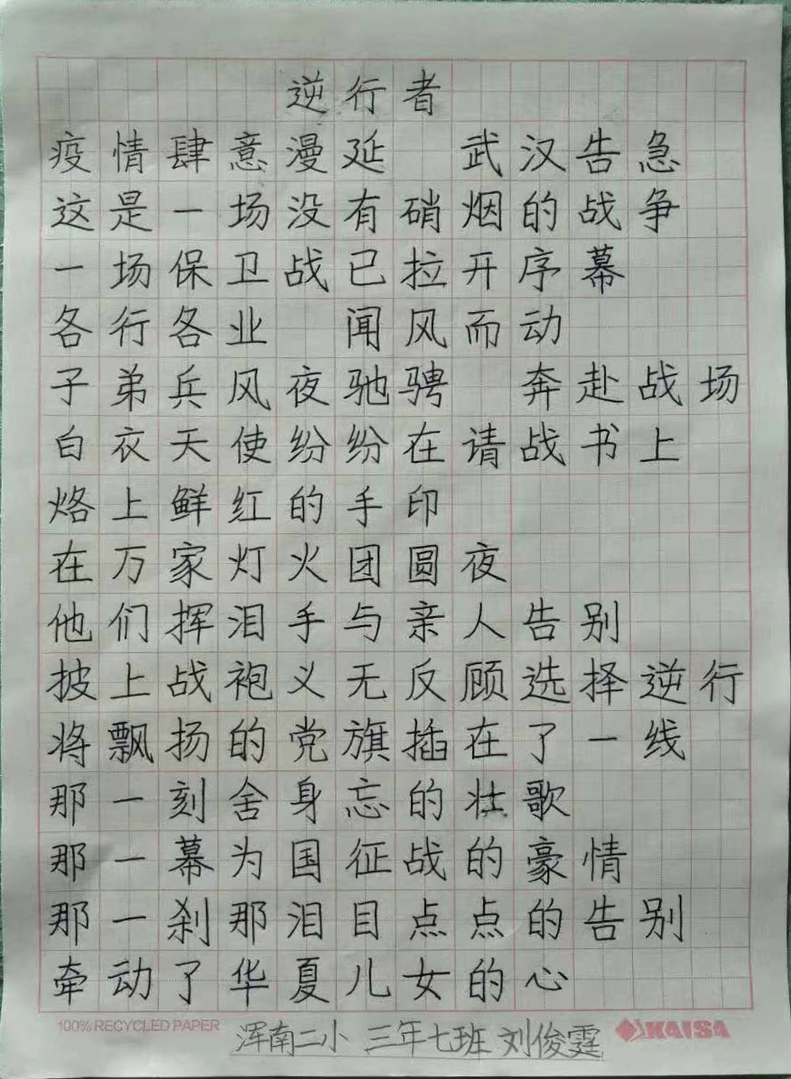 逆行者
疫情肆意漫延 武汉告急
这是一场没有硝烟的战争
一场保卫战已拉开序幕
各行各业 闻风而动
子弟兵风夜驰骋 奔赴战场
白衣天使纷纷在请战书上
烙上鲜红的手印
在万家灯火团圆夜
他们挥泪手与亲人告别
披上战袍义无反顾选择逆行
将飘扬的党旗插在了一线
那一刻舍身忘的壮歌
那一幕为国征战的豪情
那一刹那泪目点点的告别
牵动了华夏儿女的心
100% RECYCLED PAPER 浑南二小 三年七班 刘俊霆 KAISA